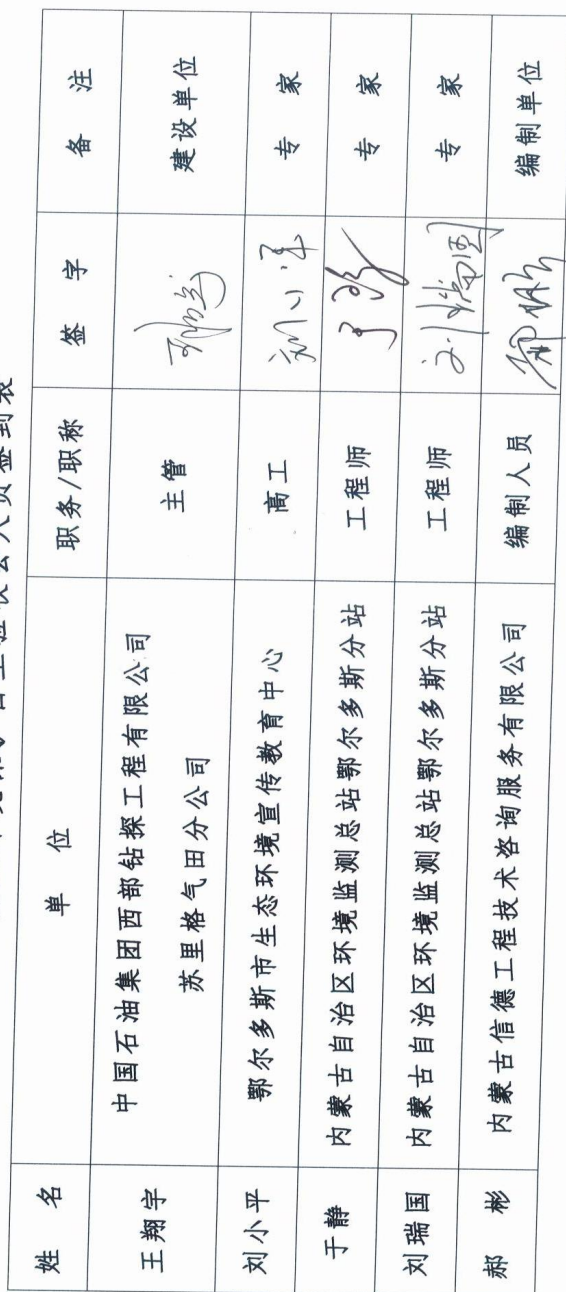 自主验收会人员签到表
姓 名 单 位 职务/职称 签 字 备 注
王翔宇 中国石油集团西部钻探工程有限公司 主管 建设单位
苏里格气田分公司
刘小平 鄂尔多斯市生态环境宣传教育中心 高工 刘小平 专 家
于静 内蒙古自治区环境监测总站鄂尔多斯分站 工程师 于静 专 家
刘瑞国 内蒙古自治区环境监测总站鄂尔多斯分站 工程师 刘瑞国 专 家
郝 彬 内蒙古信德工程技术咨询服务有限公司 编制人员 编制单位